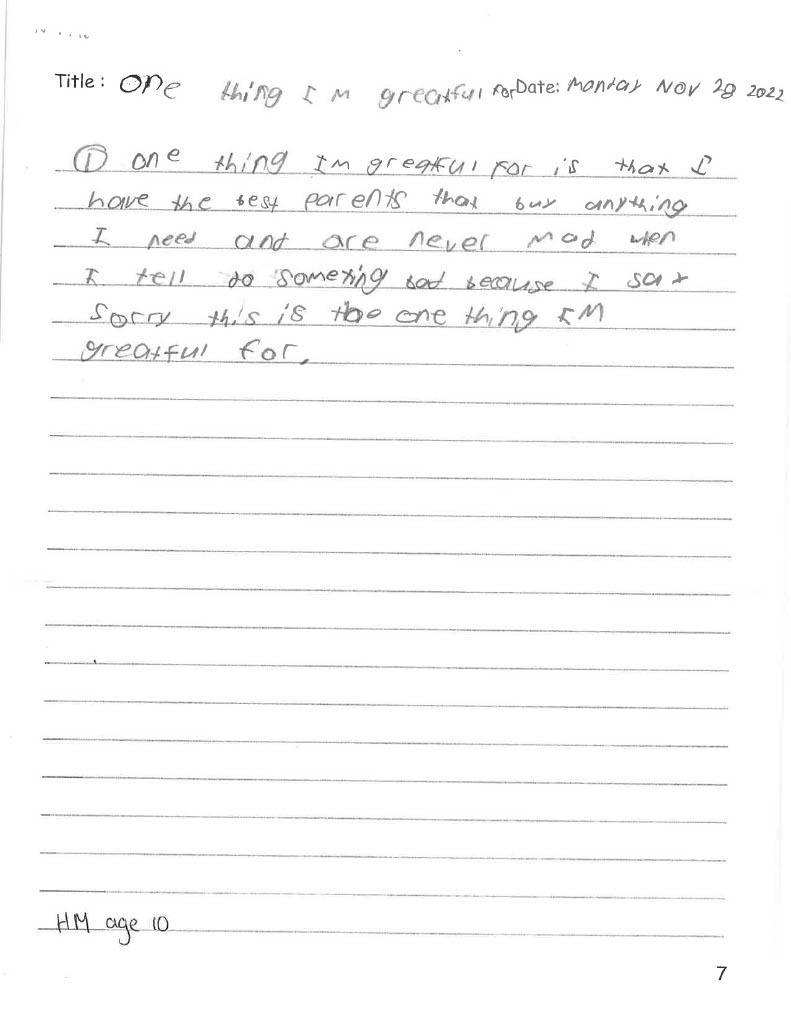 Title: one thing I M greatful for Date: Monday Nov 28 2022
① one thing IM greatful for is that I
have the best parents that buy anything
I need and are never mad when
I tell do something bad because I say
sorry this is the one thing IM
greatful for.
HM age 10
7